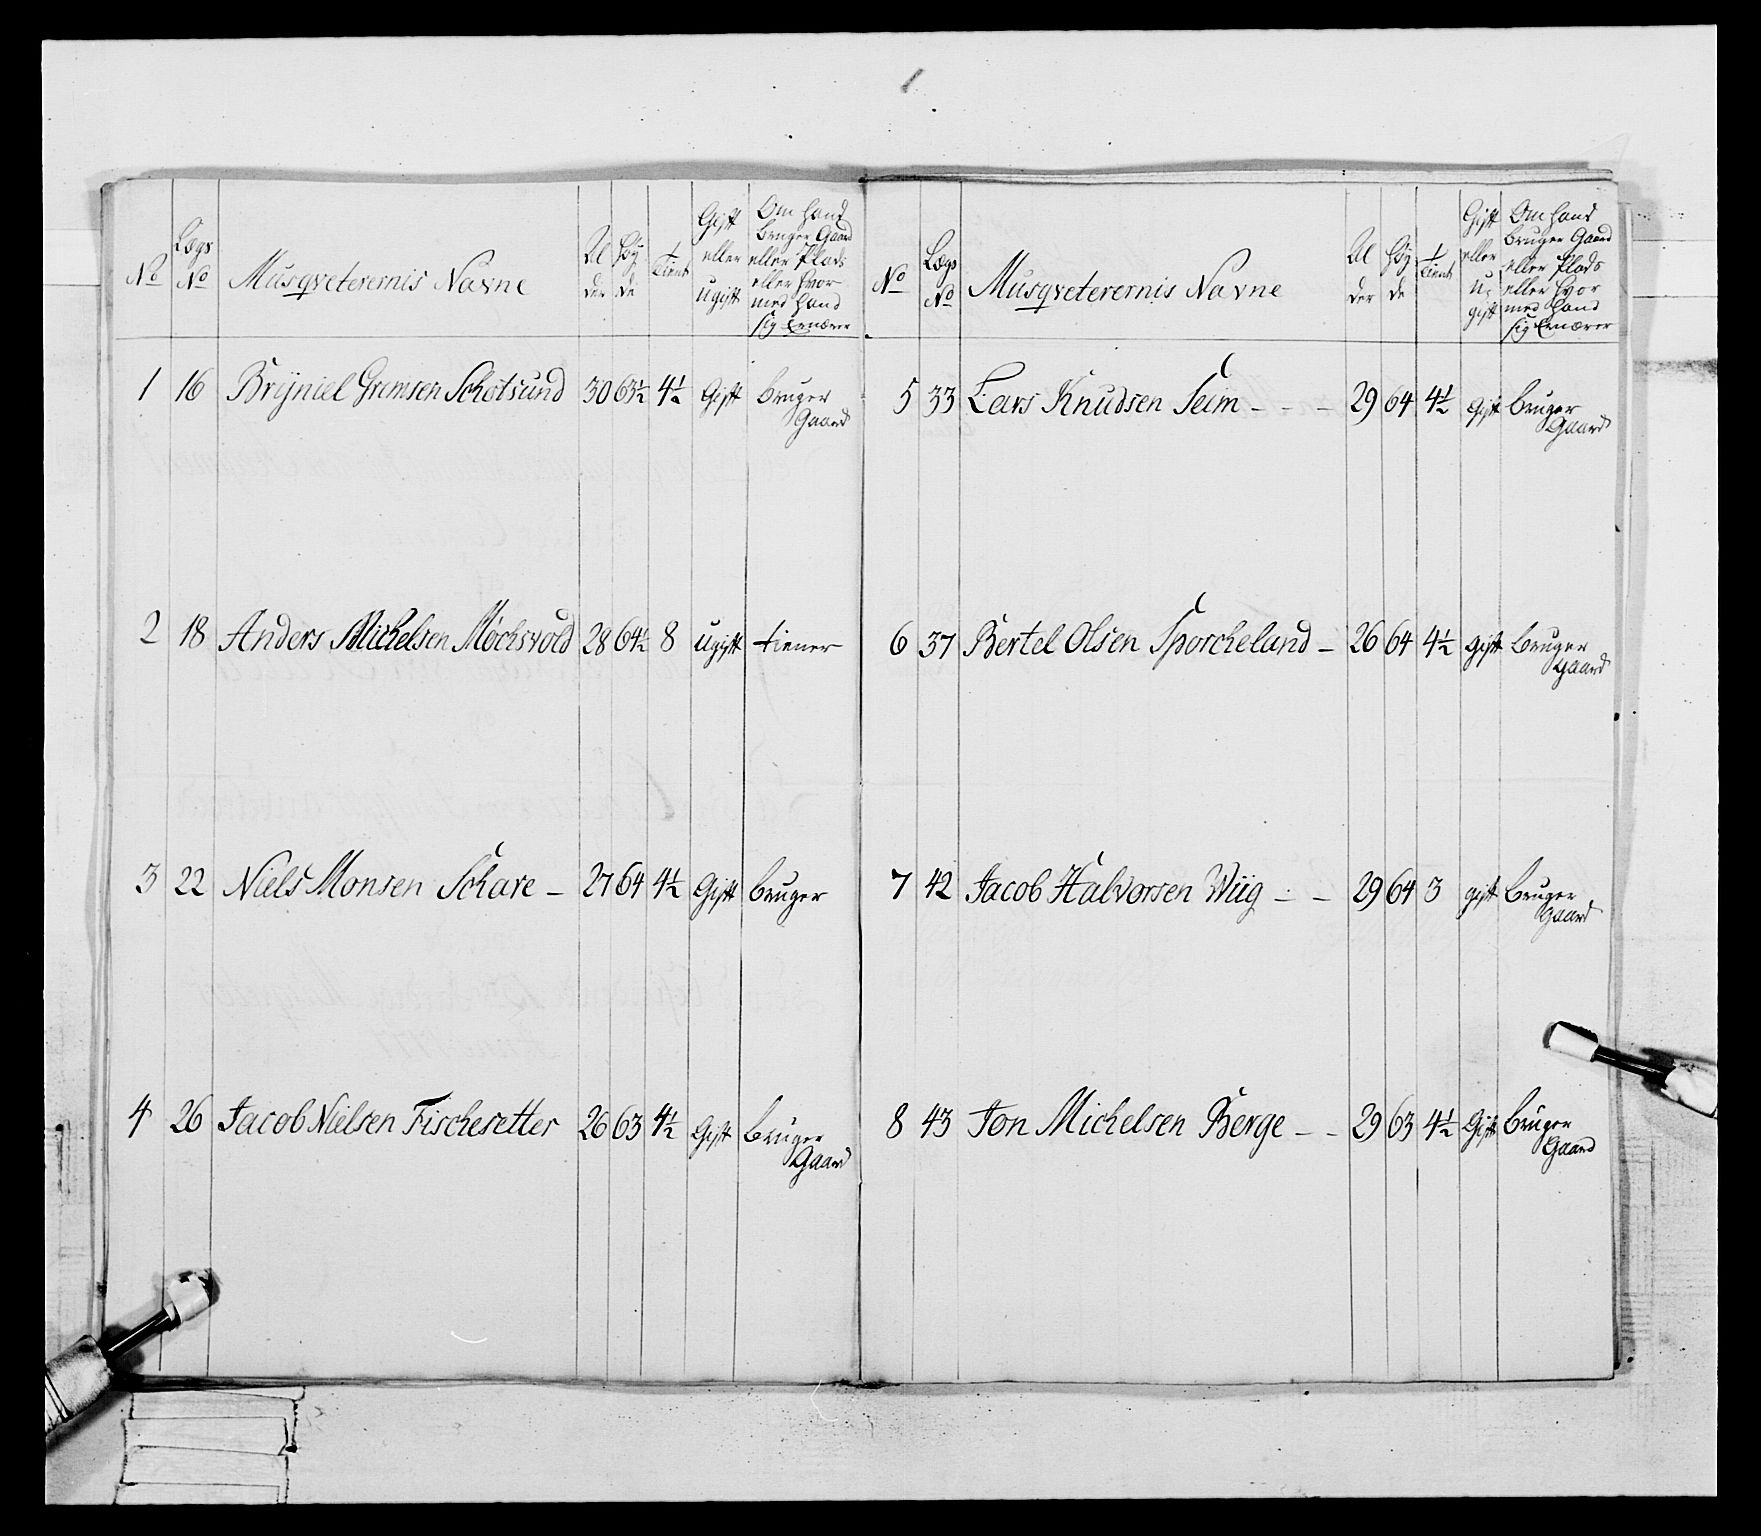 No | Lægs No | Musqveterernis Navne | Al der | Høy de | Tient | Gift eller Ugift | Om hand bruger Gaard eller Plads eller hvor med hand sig Ernærer
1 | 16 | Brÿniel Gromsen Schotsund | 30 | 63½ | 4½ | Gift | bruger Gaard
2 | 18 | Anders Michelsen Møchsvold | 28 | 64½ | 8 | Ugift | tiener
3 | 22 | Niels Monsen Schare – | 27 | 64 | 4½ | Gift | bruger
4 | 26 | Jacob Nielsen Fischesetter | 26 | 63 | 4½ | Gift | bruger Gaard
No | Lægs No | Musqveterernis Navne | Al der | Høy de | Tient | Gift eller U: gift | Om hand bruger Gaard eller Plads eller hvor med hand sig Ernærer
5 | 33 | Lars Knudsen Seim – – – | 29 | 64 | 4½ | Gift | bruger Gaard
6 | 37 | Bertel Olsen Sporcheland – | 26 | 64 | 4½ | gift | bruger Gaard
7 | 42 | Jacob Halvorsen Wiig – – | 29 | 64 | 3 | gift | bruger Gaard
8 | 43 | Jon Michelsen Berge – – | 29 | 63 | 4½ | Gift | bruger Gaard